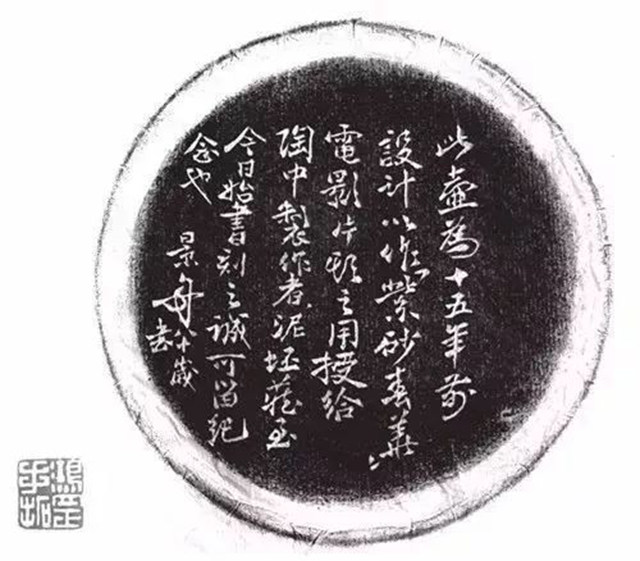 此壺為十五年前
設計以作紫砂春華
電影片頭之用授給
陶中製作者泥坯藏至
今日始書刻之誠可留紀
念也
景舟
八十歲
書
鴻鈞手拓